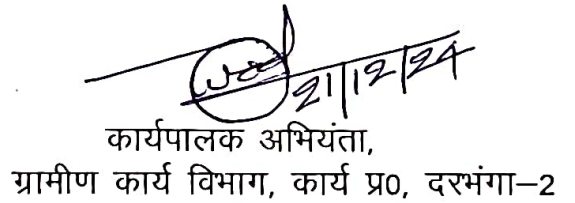 21/12/24
कार्यपालक अभियंता,
ग्रामीण कार्य विभाग, कार्य प्र0, दरभंगा–2